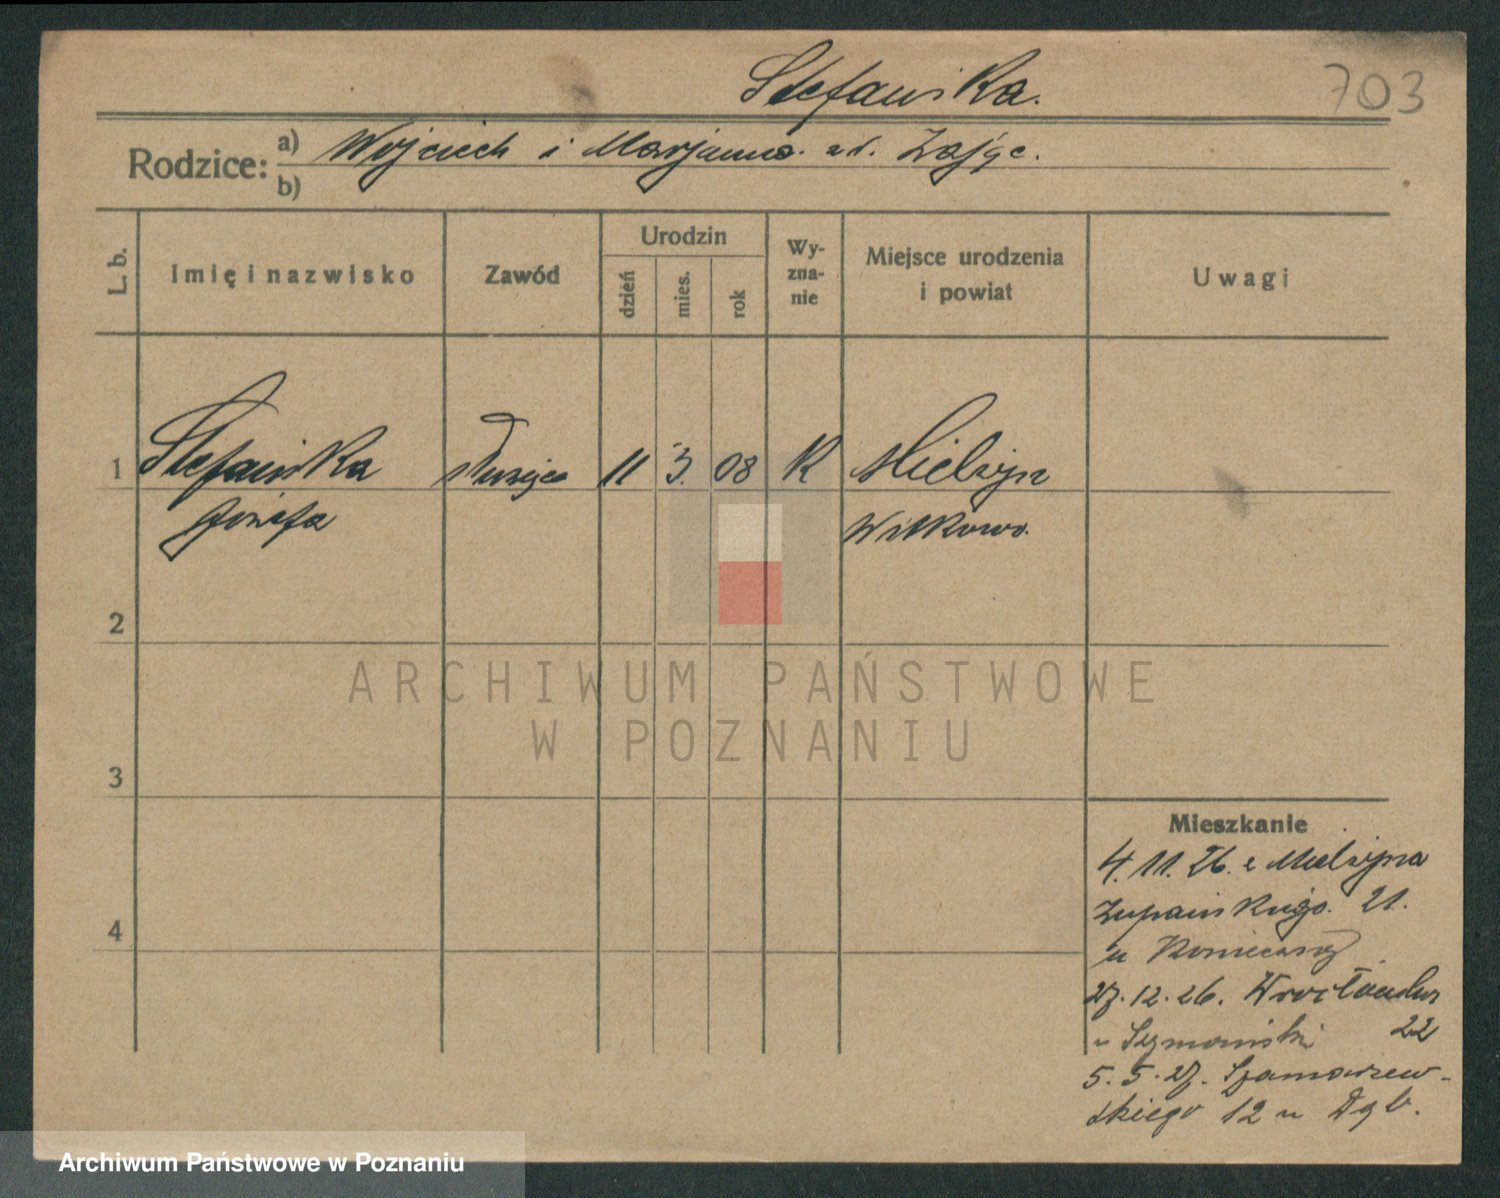 Stefańska.
703
Rodzice: a) Wojciech i Marjanna zd. Zając.
b)
L. b.
Imię i nazwisko
Zawód
Urodzin
dzień
mies.
rok
Wy-
zna-
nie
Miejsce urodzenia
i powiat
Uwagi
1 Stefańska służąca 11 3. 08 K Mielżyn
Józefa Witkowo.
2
3
4
ARCHIWUM PAŃSTWOWE
W POZNANIU
Mieszkanie
4.11.26. z Mielżyna
Żupańskiego. 21.
u
27.12.26. Wrocławska
u Szymański 22
5.5.27. Szamarzew-
skiego 12 u
Archiwum Państwowe w Poznaniu